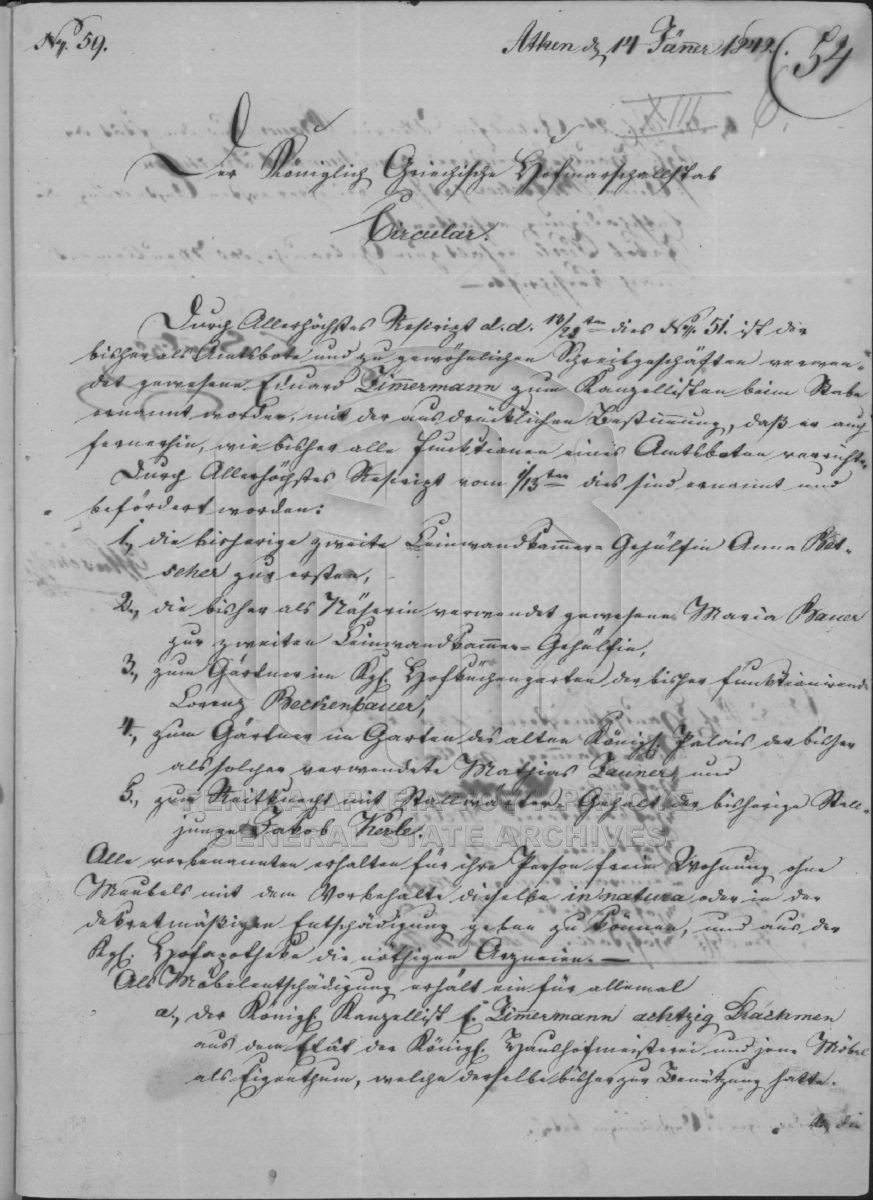 No. 59. Athen d. 14 Jänner 1842.
54
XIII
Der Königlich Griechische Hofmarschallstab
Circular.
Durch Allerhöchstes Rescript d. d. dies No. 51. ist der
bisher als Amtsbote und zu gewöhnlichen Schreibgeschäften verwen-
det gewesene Eduard Zimmermann zum Kanzellisten beim Stabe
ernannt worden, mit der ausdrücklichen Bestimmung, daß er auch
fernerhin, wie bisher alle Funktionen eines Amtsboten verrichte.
Durch Allerhöchstes Rescript vom 1/13ten dies sind ernannt und
befördert worden:
1., die bisherige zweite Leinwandkammer-Gehülfin Anna Bet-
scher zur ersten,
2., die bisher als Näherin verwendet gewesene Maria Bauer
zur zweiten Leinwandkammer-Gehülfin,
3., zum Gärtner im Kgl. Hofküchengarten der bisher funktionirende
Lorenz Beckenbauer,
4., zum Gärtner im Garten des alten Königl. Palais der bisher
als solcher verwendete Mathias Zauner, und
5., zum Reitknecht mit Stallwärter-Gehalt der bisherige Stall-
junge Jakob Kerle.
Alle vorbenannten erhalten für ihre Person freie Wohnung ohne
Meubels mit dem Vorbehalte dieselbe in natura oder in der
dekretmäßigen Entschädigung geben zu können, und aus der
Kgl. Hofapotheke die nöthigen Arzneien. —
Als Möbelentschädigung erhält ein für allemal
a., der Königl. Kanzellist E. Zimermann achtzig Drachmen
aus dem Etat der Königl. Haushofmeisterei und jene Möbel
als Eigenthum, welche derselbe bisher zur Benützung hatte.
b., die
GENERAL STATE ARCHIVES